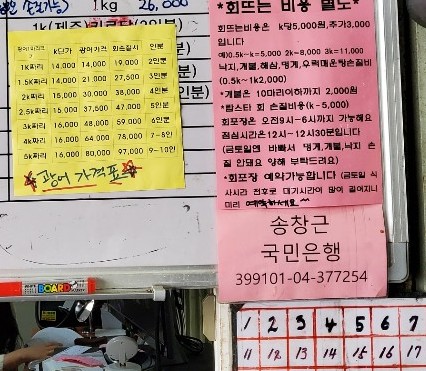 1kg 26,000
k단가 광어가격 회손질시 인분
1k짜리 14,000 14,000 19,000 2인분
1.5k짜리 14,000 21,000 27,500 3인분
2k짜리 15,000 30,000 38,000 4인분
2.5k짜리 15,000 37,500 47,000 5인분
3k짜리 16,000 48,000 59,000 6인분
4k짜리 16,000 64,000 78,000 7~8인
5k짜리 16,000 80,000 97,000 9~10인
광어 가격표
*회뜨는 비용 별도*
*회뜨는비용은 k당5,000원,추가3,000
입니다
예)0.5k~k=5,000 2k=8,000 3k=11,000
낙지,개불,해삼,멍게,우럭매운탕손질비
(0.5k~1k2,000)
*개불은 10마리이하까지 2,000원
*랍스타 회 손질비용(k~5,000)
회포장은 오전9시~6시까지 가능해요
점심시간은12시~12시30분입니다
(금토일엔 바빠서 멍게,개불,낙지 손
질 안돼요 양해 부탁드려요)
*회포장 예약가능합니다 (금토일 식
사시간 전후로 대기시간이 많이 길어지니
미리
송창근
국민은행
399101-04-377254
BOARD
1 2 3 4 5 6 7
11 12 13 14 15 16 17